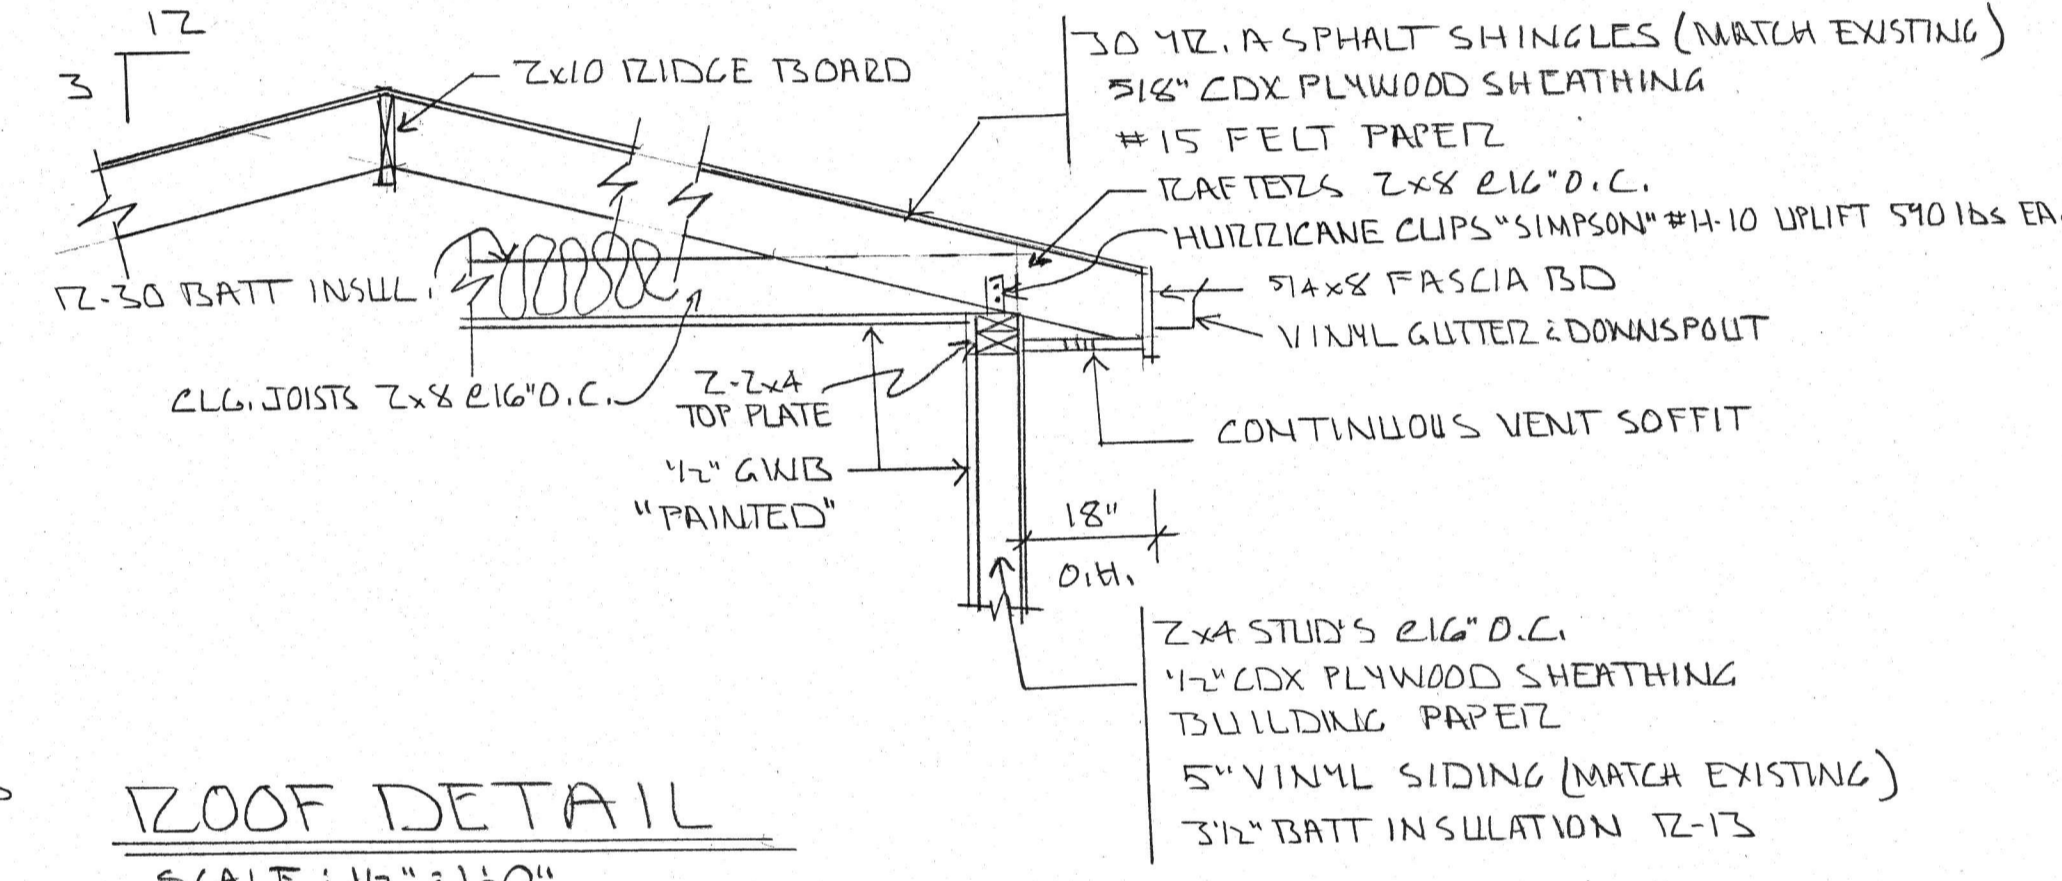 12
3
2x10 RIDGE BOARD
30 YR. ASPHALT SHINGLES (MATCH EXISTING)
5/8" CDX PLYWOOD SHEATHING
#15 FELT PAPER
RAFTERS 2x8 @16"O.C.
HURRICANE CLIPS "SIMPSON" #H-10 UPLIFT 590 lbs EA.
5/4x8 FASCIA BD
VINYL GUTTER & DOWNSPOUT
R-30 BATT INSUL.
CLG. JOISTS 2x8 @16"O.C.
2-2x4
TOP PLATE
1/2" GWB
"PAINTED"
CONTINUOUS VENT SOFFIT
18"
O.H.
2x4 STUD'S @16" O.C.
1/2" CDX PLYWOOD SHEATHING
BUILDING PAPER
5" VINYL SIDING (MATCH EXISTING)
3 1/2" BATT INSULATION R-13
ROOF DETAIL
SCALE: 1/2" = 1'-0"